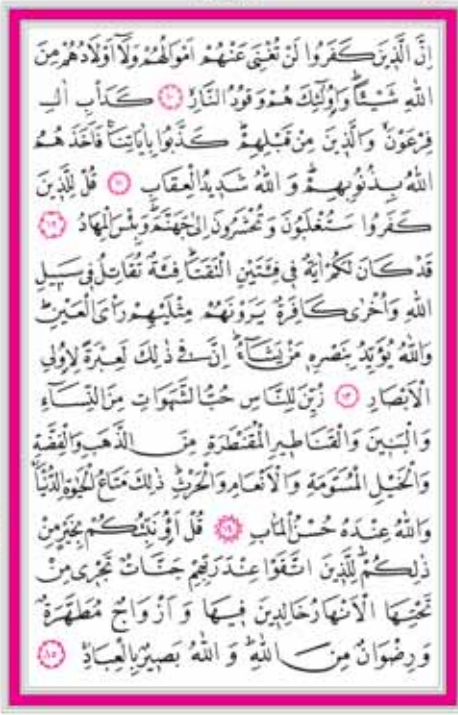 اِنَّ الَّذ۪ينَ كَفَرُوا لَنْ تُغْنِيَ عَنْهُمْ اَمْوَالُهُمْ وَلَٓا اَوْلَادُهُمْ مِنَ
اللّٰهِ شَيْـًٔاۜ وَاُو۬لٰٓئِكَ هُمْ وَقُودُ النَّارِۙ ﴿١٠﴾ كَدَأْبِ اٰلِ
فِرْعَوْنَۙ وَالَّذ۪ينَ مِنْ قَبْلِهِمْۜ كَذَّبُوا بِاٰيَاتِنَاۚ فَاَخَذَهُمُ
اللّٰهُ بِذُنُوبِهِمْۜ وَاللّٰهُ شَد۪يدُ الْعِقَابِ ﴿١١﴾ قُلْ لِلَّذ۪ينَ
كَفَرُوا سَتُغْلَبُونَ وَتُحْشَرُونَ اِلٰى جَهَنَّمَۜ وَبِئْسَ الْمِهَادُ ﴿١٢﴾
قَدْ كَانَ لَكُمْ اٰيَةٌ ف۪ي فِئَتَيْنِ الْتَقَتَاۜ فِئَةٌ تُقَاتِلُ ف۪ي سَب۪يلِ
اللّٰهِ وَاُخْرٰى كَافِرَةٌ يَرَوْنَهُمْ مِثْلَيْهِمْ رَأْيَ الْعَيْنِۜ
وَاللّٰهُ يُؤَيِّدُ بِنَصْرِه۪ مَنْ يَشَٓاءُۜ اِنَّ ف۪ي ذٰلِكَ لَعِبْرَةً لِاُو۬لِي
الْاَبْصَارِ ﴿١٣﴾ زُيِّنَ لِلنَّاسِ حُبُّ الشَّهَوَاتِ مِنَ النِّسَٓاءِ
وَالْبَن۪ينَ وَالْقَنَاط۪يرِ الْمُقَنْطَرَةِ مِنَ الذَّهَبِ وَالْفِضَّةِ
وَالْخَيْلِ الْمُسَوَّمَةِ وَالْاَنْعَامِ وَالْحَرْثِۜ ذٰلِكَ مَتَاعُ الْحَيٰوةِ الدُّنْيَاۚ
وَاللّٰهُ عِنْدَهُ حُسْنُ الْمَاٰبِ ﴿١٤﴾ قُلْ اَؤُ۬نَبِّئُكُمْ بِخَيْرٍ مِنْ
ذٰلِكُمْۜ لِلَّذ۪ينَ اتَّقَوْا عِنْدَ رَبِّهِمْ جَنَّاتٌ تَجْر۪ي مِنْ
تَحْتِهَا الْاَنْهَارُ خَالِد۪ينَ ف۪يهَا وَاَزْوَاجٌ مُطَهَّرَةٌ
وَرِضْوَانٌ مِنَ اللّٰهِۜ وَاللّٰهُ بَص۪يرٌ بِالْعِبَادِۚ ﴿١٥﴾